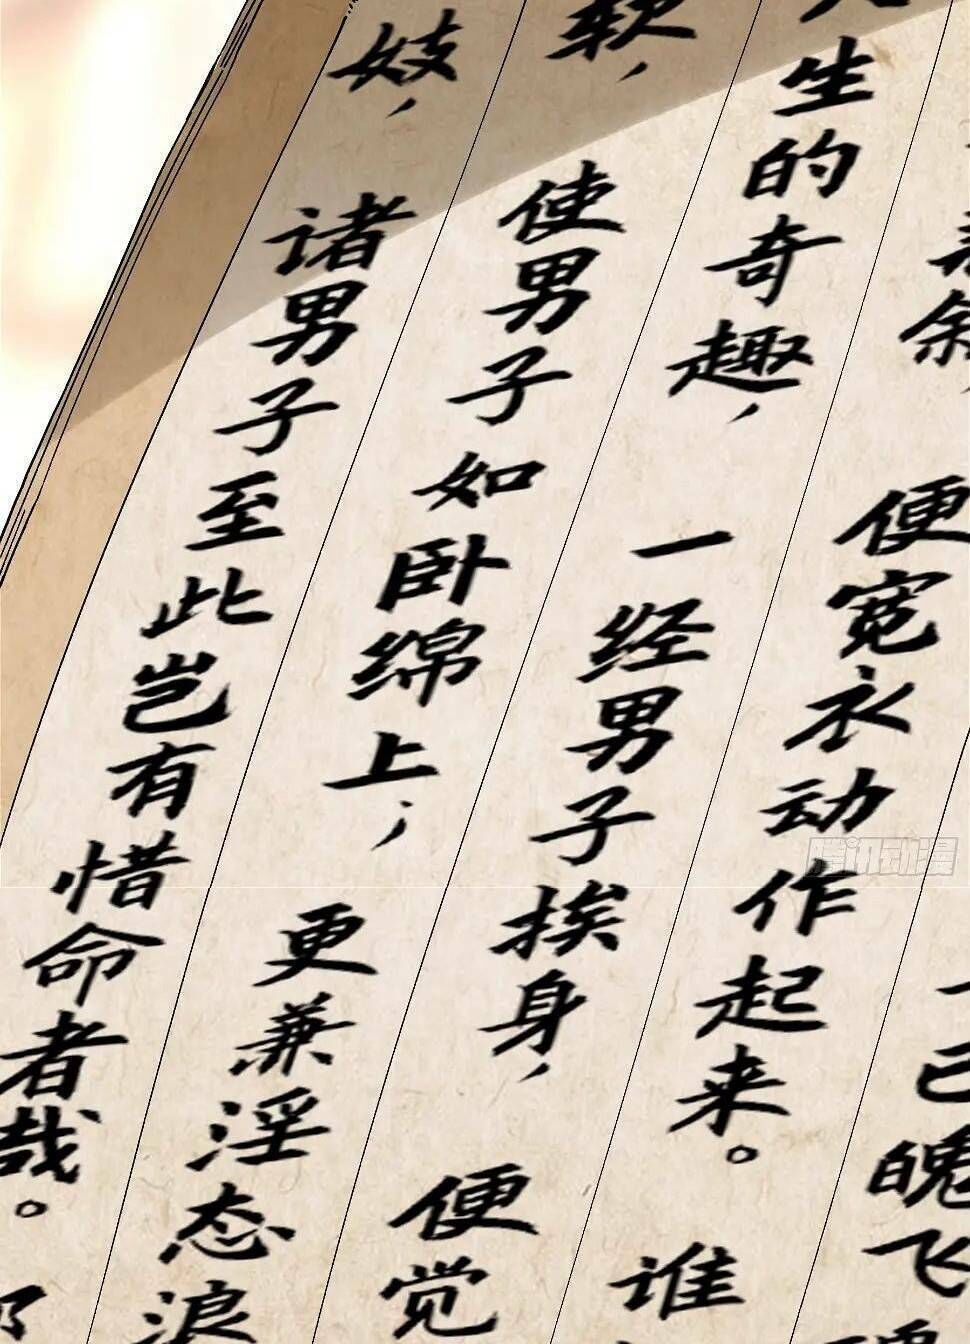 余，便宽衣动作起来。谁
生的奇趣，一经男子挨身，便觉
软，使男子如卧绵上，更兼淫态浪
妓，诸男子至此岂有惜命者哉。
已魄飞
腾讯动漫